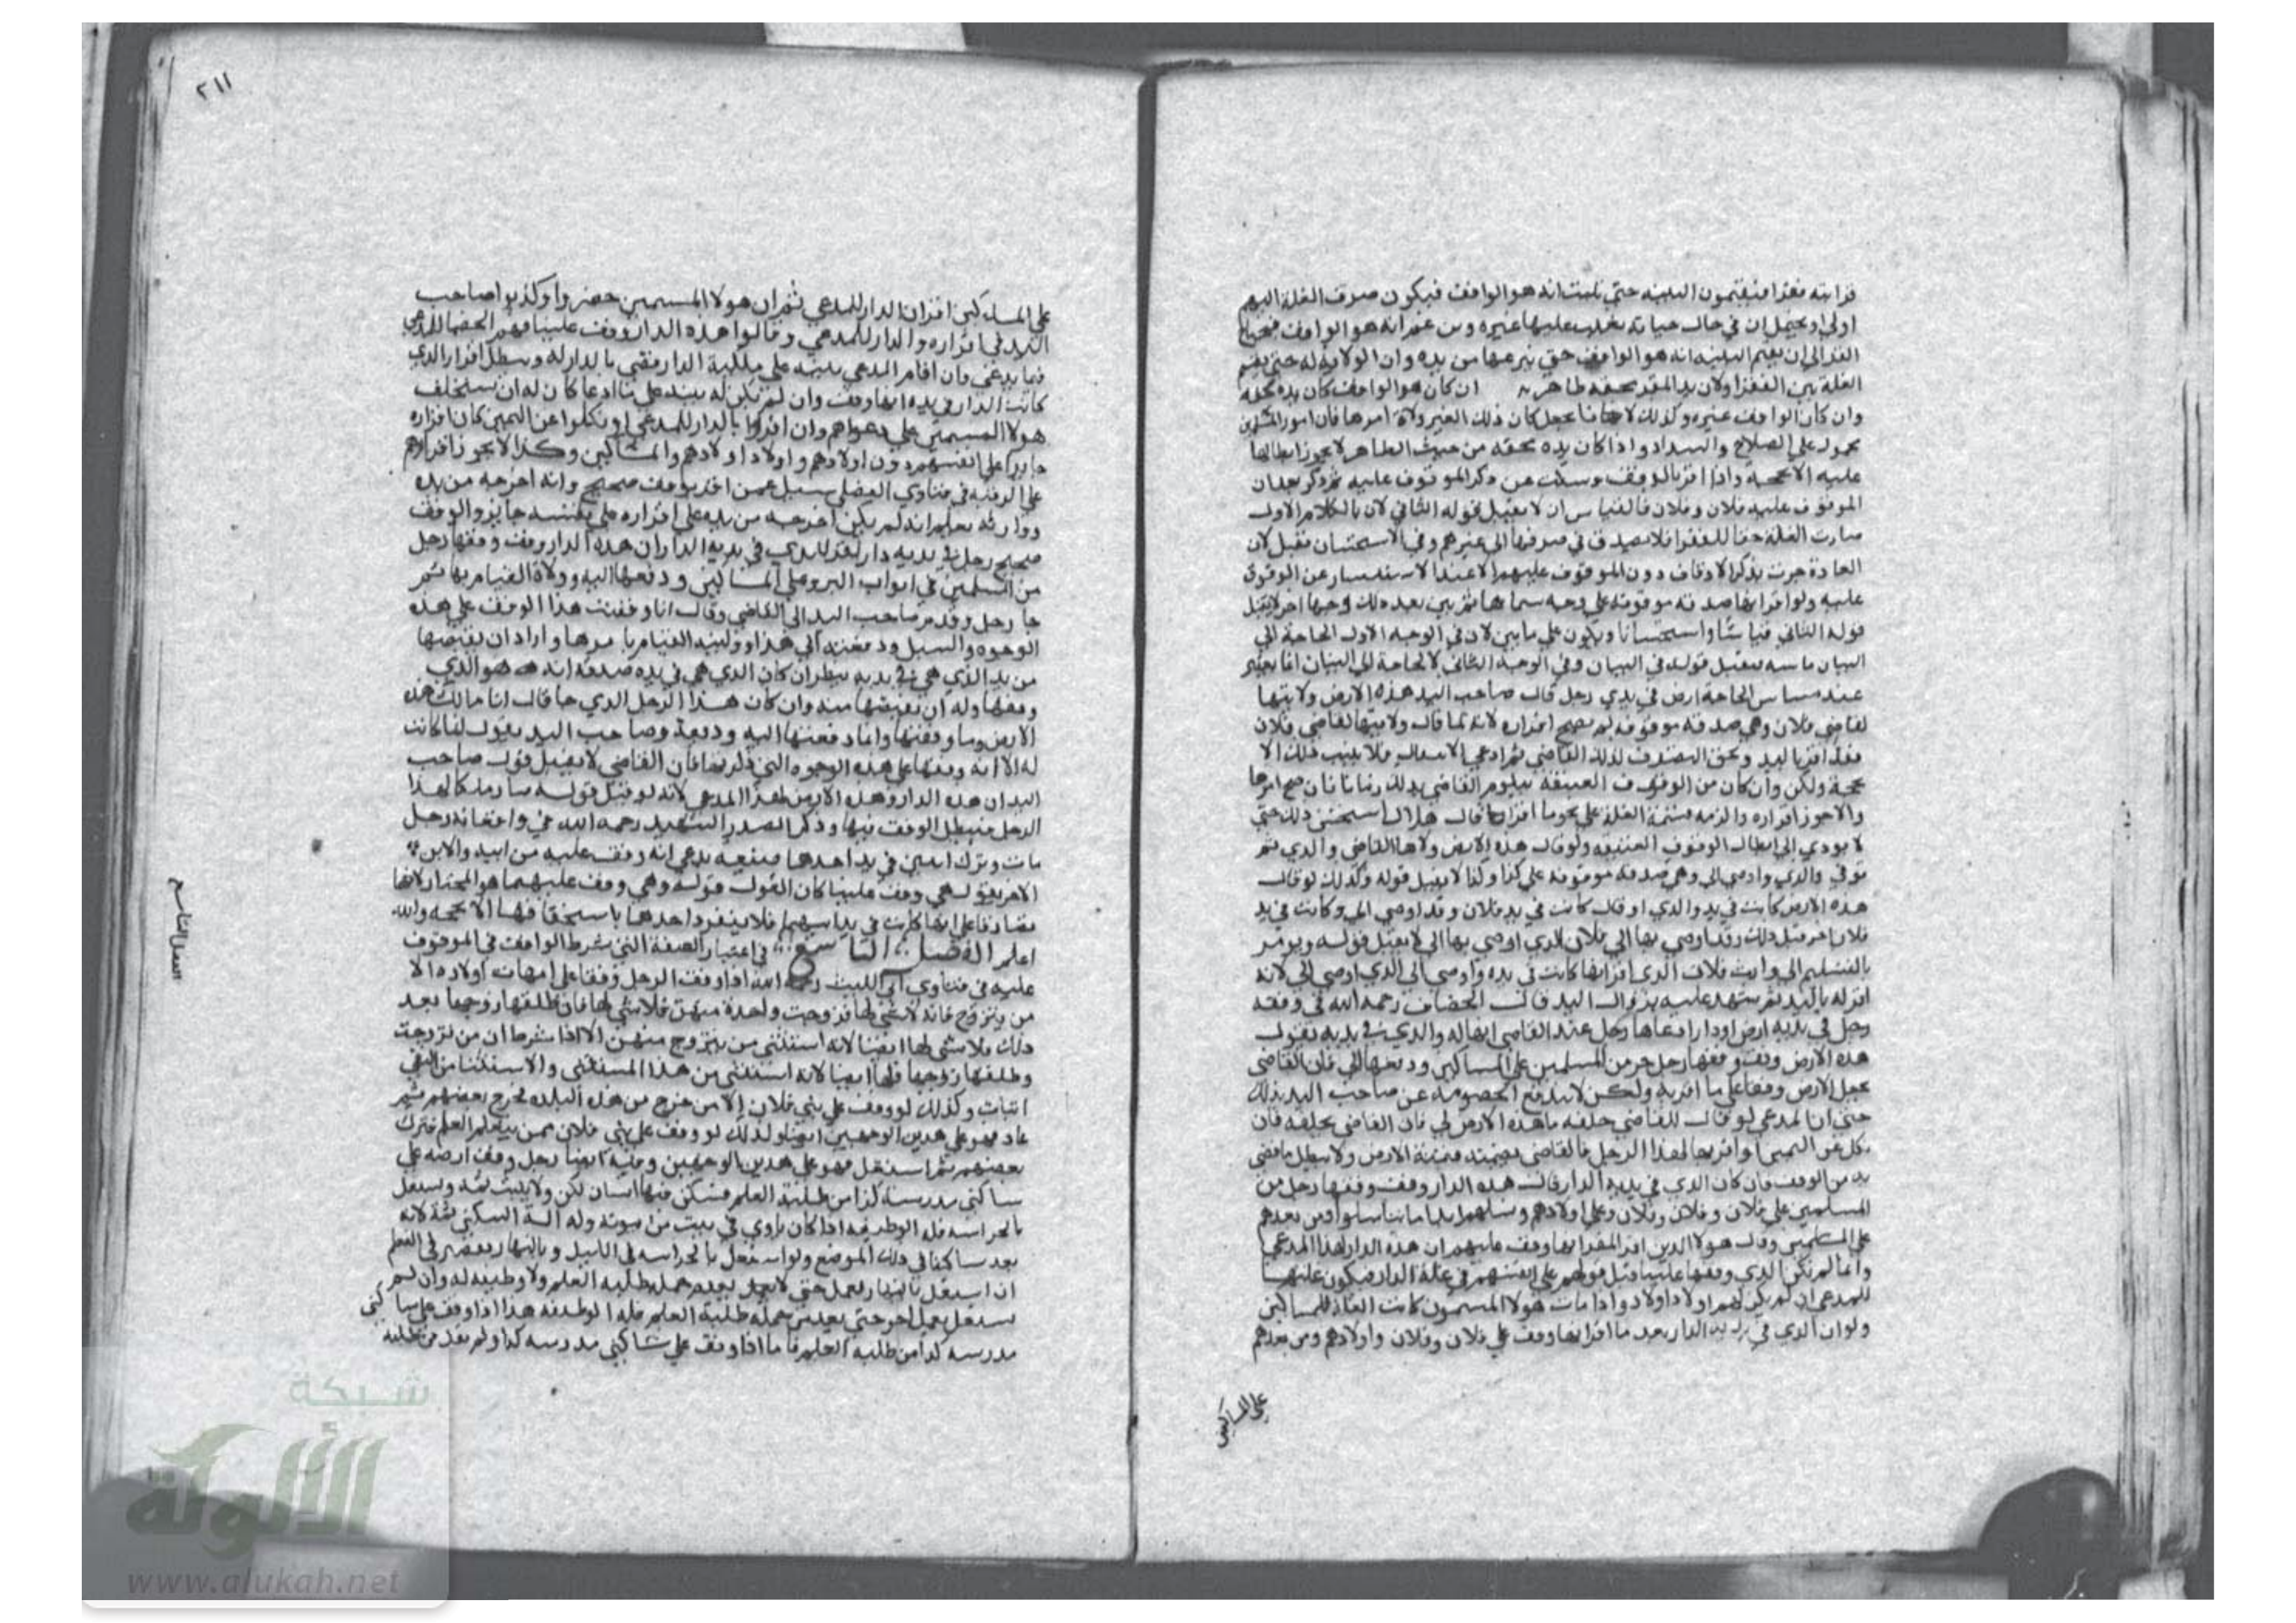 قرابته فقرا فيقيمون البينه حتي تثبت انه هو الواقف فيكون صرف الغلة اليهم
اولي او يحتمل ان في حال حياته تغلب عليها غيره ومن غير انه هو الواقف فيحتاج
الغلة بين الفقرا ولان يد المقر محقه ظاهر ان كان هو الواقف كان يده محقه
وان كان الواقف غيره وكذلك يجعل كان ذلك الغير ولاه امرها فان امور المسلمين
محمول علي الصلاح والسداد واذا كان يده محقه من حيث الظاهر لا يجوز ابطالها
عليه الا بحجة واذا اقر بالوقف وسكت عن ذكر الموقوف عليه ثم ذكر بعد ان
الموقوف عليه فلان وفلان فالقياس ان لا يقبل قوله الثاني لان بالكلام الاول
صارت الغلة حقا للفقرا فلا يصدق في صرفها الي غيرهم وفي الاستحسان تقبل لان
العادة جرت بذكر الاوقاف دون الموقوف عليهم الا عند الاستفسار عن الوقوف
عليه ولو اقر انها صدقه موقوفة علي وجه سماها ثم بين بعد ذلك وجها اخر لا يقبل
قوله الثاني قياسا واستحسانا علي ما بين لان في الوجه الاول الحاجة الي
البيان ماسه فيقبل قوله في البيان وفي الوجه الثاني لا حاجة الي البيان انما يعتبر
عند مساس الحاجة ارض في يدي رجل قال صاحب اليد هذه الارض ولايتها
لقاضي فلان وهي صدقه موقوفه لم يصح اقراره لانه لما قال ولايتها لقاضي فلان
فقد اقر باليد وبحق التصرف لذلك القاضي ثم ادعي الانتقال فلا يثبت ذلك الا
بحجة ولكن وان كان من الوقوف العتيقه يتلوم القاضي في ذلك زمانا فان صح امرها
والا جوز اقراره والزمه قسمة الغلة علي نحو ما اقر قال هلال استحسن ذلك حتي
لا يودي الي ابطال الوقوف العتيقه ولو قال هذه الارض ولاها القاضي والدي ثم
توفي والدي واوصي الي وهي صدقه موقوفه علي كذا وكذا لا يقبل قوله وكذلك لو قال
هذه الارض كانت في يد والدي او قال كانت في يد فلان وقد اوصي الي وكانت في يد
فلان اخر قبل ذلك وقد اوصي بها الي فلان الذي اوصي بها الي لا يقبل قوله ويومر
بالتسليم الي وارث فلان الذي اقر انها كانت في يده واوصي الي الذي اوصي الي لانه
اقر له باليد ثم شهد عليه بزوال اليد قال الخصاف رحمه الله في وقفه
رجل في يديه ارض او دار ادعاها رجل عند القاضي انها له والذي في يديه يقول
هذه الارض وقف وقفها رجل حر من المسلمين علي المساكين ودفعها الي فان القاضي
يجعل الارض وقفا علي ما اقر به ولكن لا تندفع الخصومه عن صاحب اليد بذلك
حتي ان المدعي لو قال للقاضي حلفه ما هذه الارض لي فان القاضي يحلفه فان
نكل عن اليمين او اقر بها لهذا الرجل فالقاضي يضمنه قيمة الارض ولا يبطل ما قضي
به من الوقف فان كان الذي في يديه الدار قال هذه الدار وقف وقفها رجل من
المسلمين علي فلان وفلان وفلان وعلي اولادهم ونسلهم ابدا ما تناسلوا ومن بعدهم
علي المساكين وقال هولا الذين اقر المقر انها وقف عليهم ان هذه الدار لهذا المدعي
وانما لم تكن الذي وقفها علينا قبل قولهم علي انفسهم في غلة الدار فيكون غلتها
للمدعي ان لم يكن لهم اولاد اولاد واذا مات هولا المسمون كانت الغلة للمساكين
ولو ان الذي في يديه الدار بعد ما اقر انها وقف علي فلان وفلان وفلان واولادهم ومن بعدهم
علي المساكين
٢١١
علي المساكين اقر ان الدار للمدعي ثم ان هولا المسمين حضروا وكذبوا صاحب
اليد في اقراره والدار للمدعي وقالوا هذه الدار وقف علينا فهم الخصما للمدعي
فيما يدعي وان اقام المدعي بينه علي ملكية الدار فقضي بالدار له وبطل اقرار الذي
كانت الدار في يده انها وقف وان لم تكن له بينه علي ما ادعا كان له ان يستحلف
هولا المسمين علي دعواهم وان اقروا بالدار للمدعي او نكلوا عن اليمين كان اقراره
جايزا علي انفسهم دون اولادهم واولاد اولادهم والمساكين وكذا لا يجوز اقرارهم
علي الرقبه في فتاوي الفضلي سيل عمن اقر بوقف صحيح وانه اخرجه من يده
ووارثه يعلم انه لم يكن اخرجه من يده علي اقراره علي نفسه جايز والوقف
صحيح رجل في يديه دار اقر الذي في يديه الدار ان هذه الدار وقف وقفها رجل
من المسلمين في ابواب البر وعلي المساكين ودفعها اليه وولاة القيام بها ثم
جا رجل وقدم صاحب اليد الي القاضي وقال انا وقفت هذا الوقف علي هذه
الوجوه والسبل ودفعته الي هذا ووليته القيام بامرها واراد ان يقبضها
من يد الذي هي في يديه ينظر ان كان الذي هي في يده صدقه انه هو الذي
وقفها وله ان يقبضها منه وان كان هذا الرجل الذي جا قال انا مالك هذه
الارض وما وقفتها وانما دفعتها اليه وديعة وصاحب اليد يقول لقا كانت
له الا انه وقفها علي هذه الوجوه التي ذكرتها فان القاضي لا يقبل قول صاحب
اليد ان هذه الدار وهذه الارض لهذا المدعي لانه لو قبل قوله صار ملكا لهذا
الرجل فيبطل الوقف فيها وذكر الصدر الشهيد رحمه الله في واقعاته رجل
مات وترك ابنين في يد احدهما ضيعه يدعي انه وقف عليه من ابيه والابن
الاخر يقول هي وقف علينا كان القول قوله وهي وقف عليهما هو المختار لانهما
تصادقا علي انها كانت في يد ابيهما فلا ينفرد احدهما باستحقاقها الا بحجه والله
اعلم الفصل التاسع في اعتبار الصفة التي شرط الواقف في الموقوف
عليه في فتاوي ابي الليث رحمه الله اذا وقف الرجل وقفا علي امهات اولاده الا
من يتزوج فانه لا شي لها فتزوجت واحدة منهن فلا شي لها فان طلقها زوجها بعد
ذلك فلا شي لها ايضا لانه استثني من يتزوج منهن الا اذا شرط ان من تزوجت
وطلقها زوجها فلها ايضا لانه استثني من هذا المستثني والاستثنا من النفي
اثبات وكذلك لو وقف علي بني فلان الا من خرج من هذه البلده فخرج بعضهم ثم
عاد فهو علي هذين الوجهين ايضا وكذلك لو وقف علي بني فلان ممن يتعلم العلم فترك
بعضهم ثم اشتغل فهو علي هذين الوجهين وفيه ايضا رجل وقف ارضه علي
ساكني مدرسة كذا من طلبة العلم فسكن فيها انسان لكن ولا يبيت فيه ويشتغل
بالحراسه فله الوظيفه اذا كان ياوي في بيت من بيوته وله آلة السكني فيه لانه
يعد ساكنا في ذلك الموضع ولو اشتغل بالحراسه في الليل وبالنهار يقصر في التعلم
ان اشتغل بالنهار بعمل حتي لا يعد من جملة طلبه العلم ولا وظيفه له وان لم
يشتغل بعمل اخر حتي يعد من جملة طلبة العلم فله الوظيفه هذا اذا وقف علي ساكني
مدرسه كذا من طلبه العلم فاما اذا وقف علي ساكني مدرسه كذا ولم يقد من طلبه
الفصل التاسع
شبكة
الألوكة
www.alukah.net